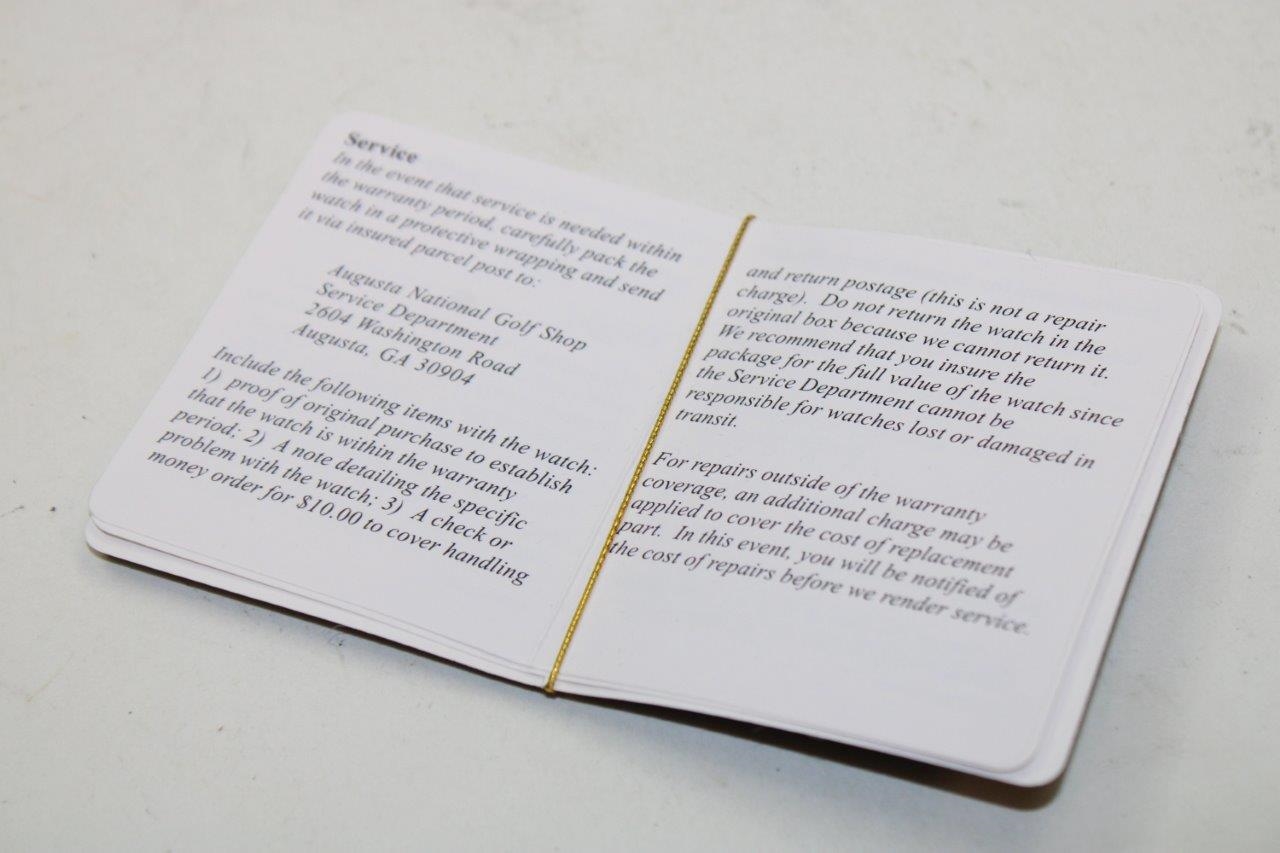 Service
In the event that service is needed within
the warranty period, carefully pack the
watch in a protective wrapping and send
it via insured parcel post to:
Augusta National Golf Shop
Service Department
2604 Washington Road
Augusta, GA 30904
Include the following items with the watch:
1) proof of original purchase to establish
that the watch is within the warranty
period; 2) A note detailing the specific
problem with the watch; 3) A check or
money order for $10.00 to cover handling
and return postage (this is not a repair
charge). Do not return the watch in the
original box because we cannot return it.
We recommend that you insure the
package for the full value of the watch since
the Service Department cannot be
responsible for watches lost or damaged in
transit.
For repairs outside of the warranty
coverage, an additional charge may be
applied to cover the cost of replacement
part. In this event, you will be notified of
the cost of repairs before we render service.